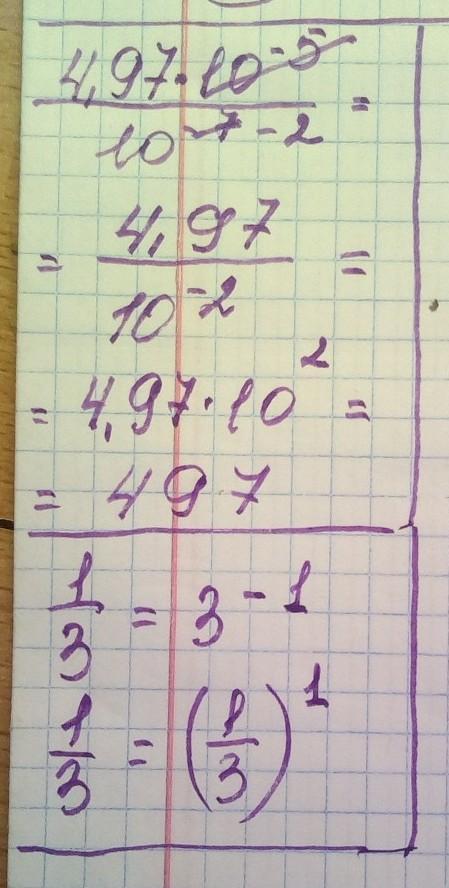 4,97·10⁻⁵
10⁻⁷ ⁻² =
= 4,97
10⁻² =
= 4,97·10² =
= 497
1/3 = 3⁻¹
1/3 = (1/3)¹